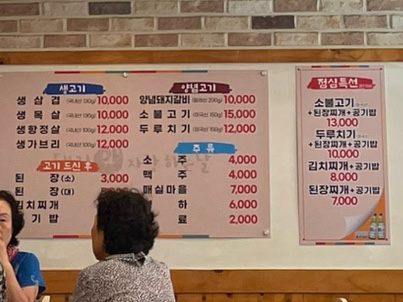 생고기
생 삼 겹 (국내산 130g) 10,000
생 목 살 (국내산 130g) 10,000
생항정살 (국내산 100g) 12,000
생가브리 (국내산 100g) 12,000
고기 드신 후
된 장 (소) 3,000
된 장 (대) 5,000
김치찌개
기 밥
양념고기
양념돼지갈비 10,000
소 불 고 기 15,000
두 루 치 기 12,000
주 류
소 주 4,000
맥 주 4,000
매실마을 7,000
하 6,000
료 2,000
점심특선
소불고기
+된장찌개+공기밥
13,000
두루치기
+된장찌개+공기밥
10,000
김치찌개+공기밥
8,000
된장찌개+공기밥
7,000